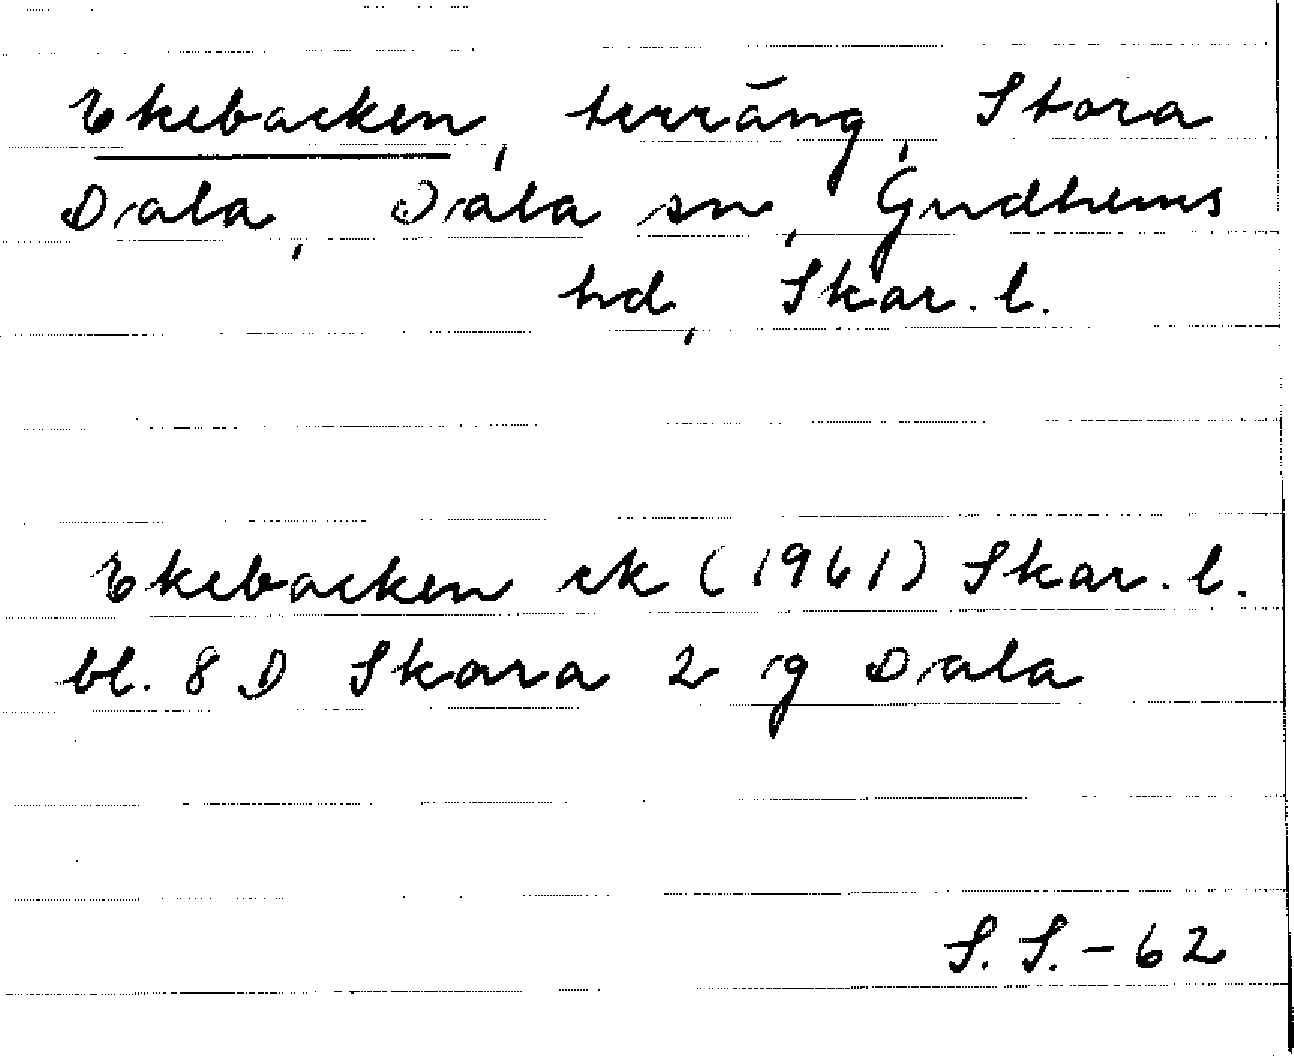 Ekebacken, terräng, Stora
Dala, Dala sn, Gudhems
hd, Skar. l.
Ekebacken ek (1961) Skar. l.
bl. 8 D Skara 2 g Dala
S. S. - 62